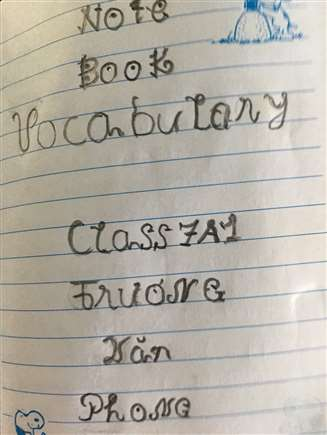 NOTE
BOOK
Vocabulary
Class 7A1
TRƯƠNG
Văn
PhONG